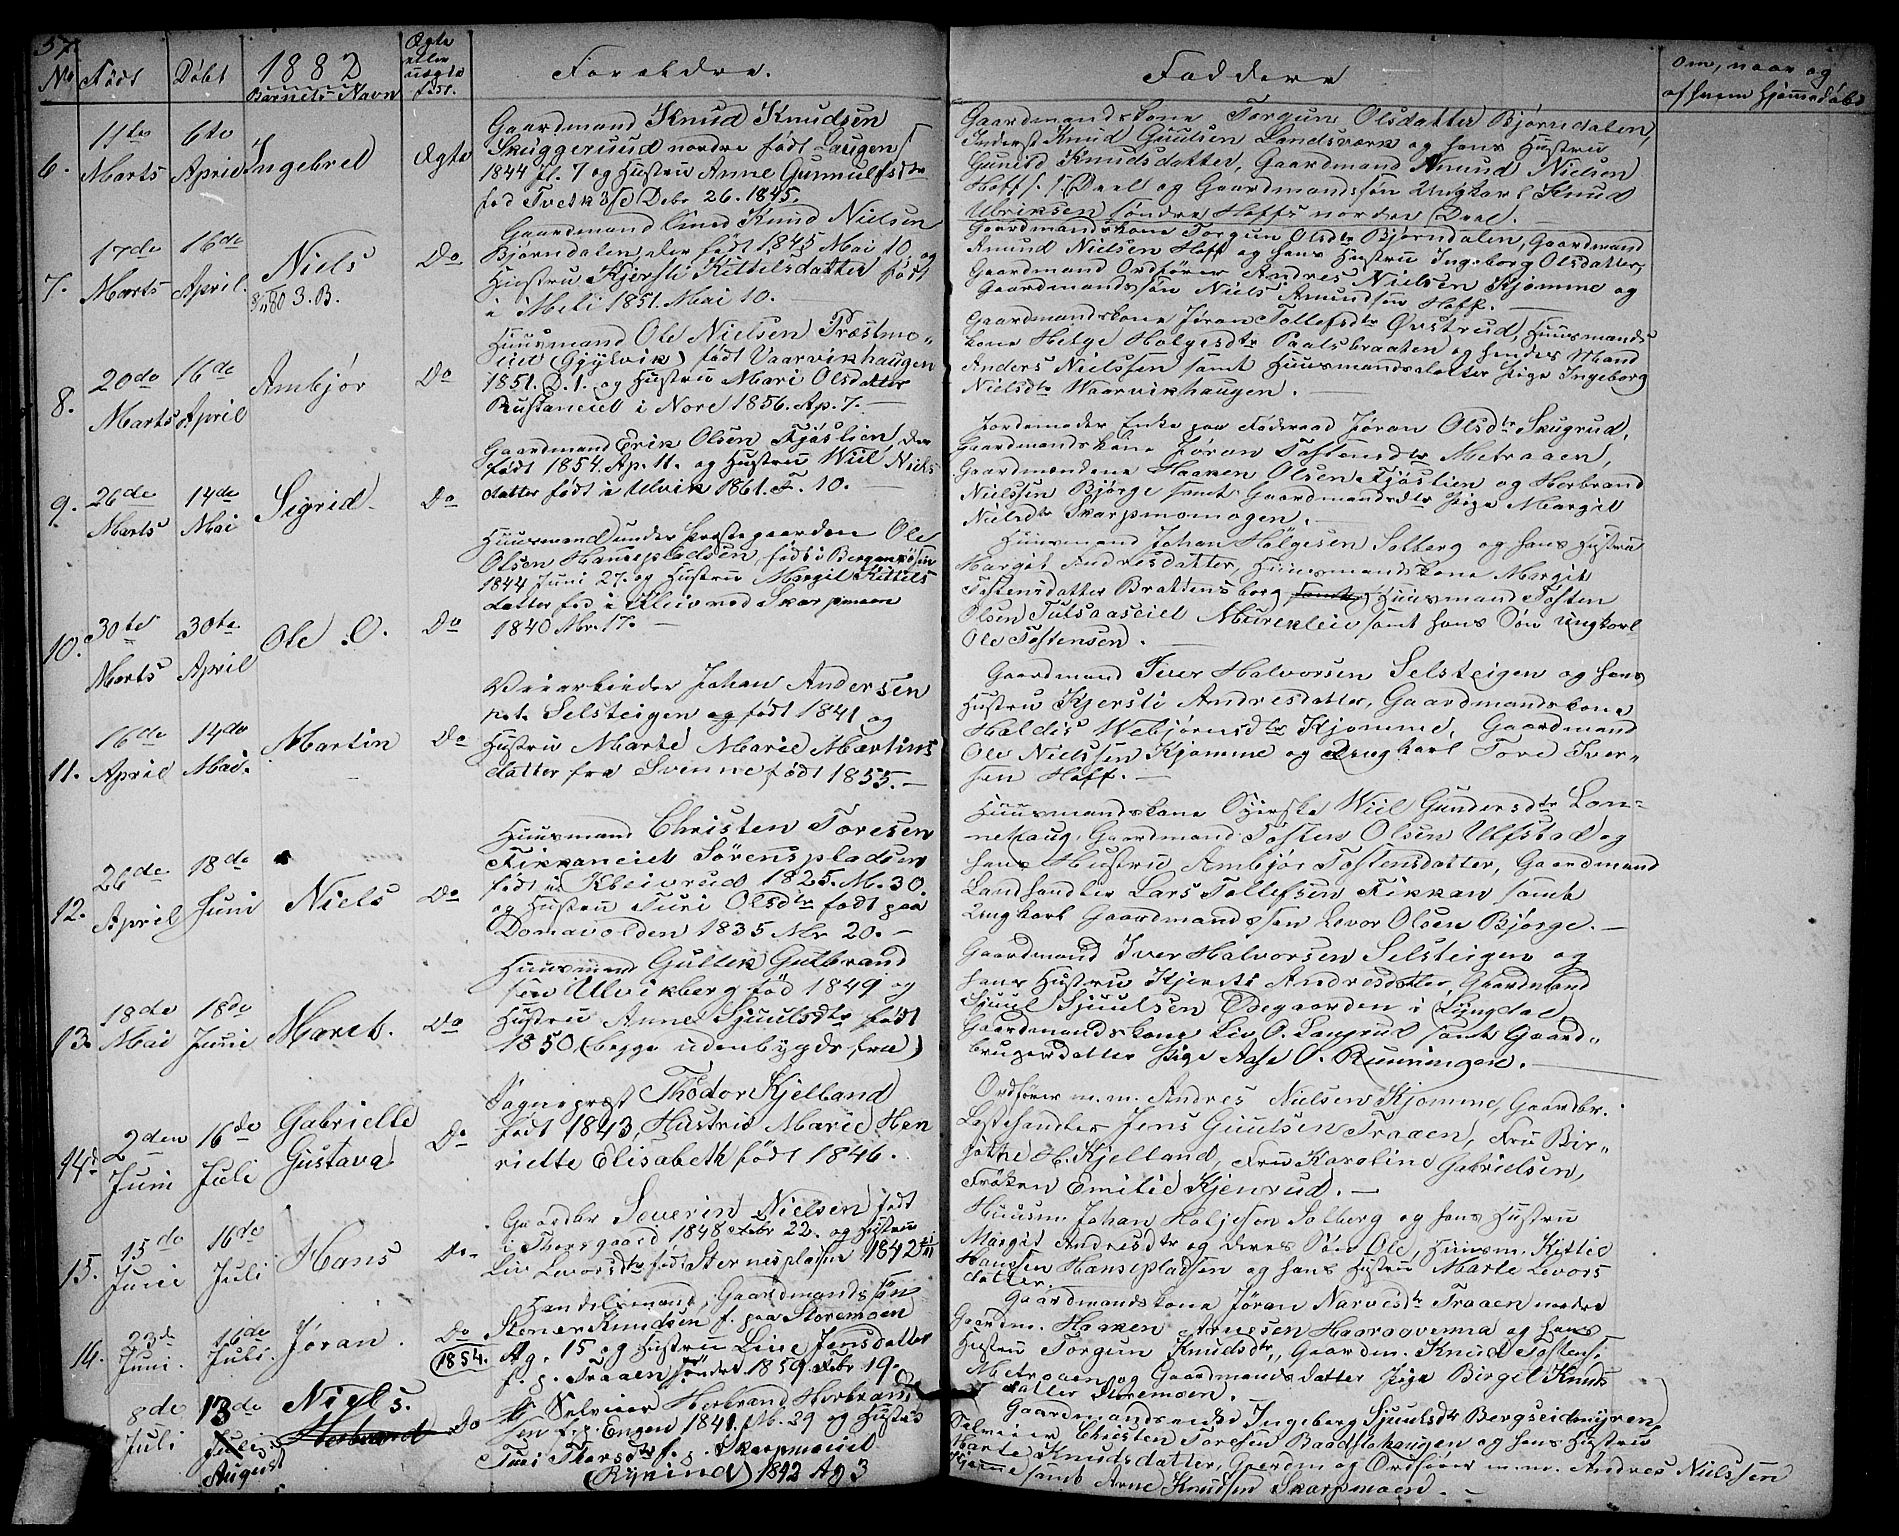 57.
No Født Døbt 1882 Barnets Navn Ægte eller uægte født. Foreldre. Faddere Om, naar og af hvem hjemmedøbt
6. 11te Marts 6te April Ingebret Ægte
Gaardmand Knud Knudsen
Skuggerud nordre født Laugen
1844 f. 7 og Hustru Anne Gunnulfsdtr
fød Tvetkås Debr 26. 1845.
Gaardmandskone Torgun Olsdatter Bjørndalen,
Inderst Knud Guulsen Landsverk og hans Hustru
Gunild Knudsdatter, Gaardmand Amund Nielsen
Hoff s. Deel og Gaardmandssøn Ungkarl Knud
Ulriksen søndre Hoffs nordre Deel.
7. 17de Marts 16de April Niels 3. B. Do
Gaardmand Knud Nielsen
Bjørndalen, der født 1845 Mai 10 og
Hustru Kjersti Kittelsdatter født
i Meli 1851. Mai 10.
Gaardmandskone Torgun Olsdtr Bjørndalen, Gaardmand
Amund Nielsen Hoff og hans Hustru Ingeborg Olsdatter,
Gaardmand Ordfører Andres Nielsen Kjomme og
Gaardmandssøn Niels Amundsen Hoff.
8. 20de Marts 16de April Ambjør Do
Huusmand Ole Nielsen Præstmo-
eiet (Gjylvik) født Vaarvikhaugen
1851. D. 1. og Hustru Mari Olsdatter
Rustaneiet i Nore 1856. Ap. 7.
Gaardmandskone Jøran Tollefsdtr Øvstrud, Huusmands
kone Helge Holgesdtr Paalsbraaten og hendes Mand
Anders Nielssen samt Huusmandsdatter Pige Ingeborg
Nielsdtr Waarvikhaugen.
9. 26de Marts 14de Mai Sigrid Do
Gaardmand Erik Olsen Fjøslien, der
født 1854. Ap. 11. og Hustru Wiil Niels
datter født i Ulvik 1861. F. 10.
Jordemoder Enke paa Føderaad Jøran Olsdtr Skugrud,
Gaardmandskone Jøran Tostensdtr Metraaen,
Gaardmændene Haaken Olsen Fjøslien og Herbrand
Nielssen Bjørge samt Gaardmandsdtr Pige Margit
Nielsdtr Skarpmomogen.
10. 30te Marts 30te April Ole O. Do
Huusmand under Præstegaarden Ole
Olsen Hansepladsen, født i Bergan
1844 Juni 27. og Hustru Margit Kittels
datter fød i Kleivrod Skarpmoen
1840 Nbr. 17.
Huusmand Johan Holgesen Solberg og hans Hustru
Margit Andresdatter, Huusmandskone Margit
Tostensdatter Brattensborg samt Huusmand Tosten
Olsen Tutsaaseiet Murekleiv samt hans Søn Ungkarl
Ole Tostensen.
11. 16de April 14de Mai. Martin Do
Veiarbeider Johan Andersen
p. t. Selsteigen og født 1841 og
Hustru Marte Marie Martins
datter fra Svenne født 1855.
Gaardmand Iver Halvorsen Selsteigen og hans
Hustru Kjersti Andresdatter, Gaardmandskone
Haldis Webjørnsdtr Kjomme, Gaardmand
Ole Nielssen Kjomme og Ungkarl Tore Iver-
sen Hoff.
12. 26de April 18de Juni Niels Do
Huusmand Christen Toresen
Fikkaneiet Sørenspladsen
født i Kleivrud 1825. M. 30.
og Hustru Turi Olsdtr født paa
Donavolden 1835 Nbr 20.
Huusmandskone Wiil Gundersdtr Lon-
nehaug, Gaardmand Tosten Olsen Ulfstad og
hans Hustru Ambjør Tostensdatter, Gaardmand
Landhandler Lars Tollefsen Fikkan samt
Ungkarl Gaardmandssøn Levor Olsen Bjørge.
13. 18de Mai 18de Juni Maret. Do
Huusmand Gullek Gutbrand
sen Ulvikberg fød 1849 og
Hustru Anne Sjuulsdtr født
1850. (begge udenbygds fra)
Gaardmand Iver Halvorsen Selsteigen og
hans Hustru Kjersti Andresdatter, Gaardmand
Sjuul Sjuulsen Ødegaarden i Lyngdal,
Gaardmandskone Liv O. Laugrud samt Gaard-
brugerdatter Pige Aase O. Runningen.
14. 2den Juni 16de Juli Gabrielle Gustava Do
Sognepræst Thodor Kjelland
født 1843, Hustru Marie Hen
riette Elisabeth født 1846.
Ordfører m. m. Andres Nielsen Kjomme, Gaardbr.
Lensmand Jens Guulsen Traaen, Fru Bir-
githe H. Kjelland, Fru Karoline Gabrielsen,
Frøken Emilie Kjenrud.
15. 15de Juni 16de Juli Hans Do
Gaardbr Severin Nielsen født
i Thorsgaard 1848 Febr 22. og Hustru
Liv Levorsdtr født Sternespladsen 1842
Huusm. Johan Holjesen Solberg og hans Hustru
Margit Andresdtr og deres Søn Ole, Huusm. Kittil
Hanssen Hansepladsen og hans Hustru Marte Levors
datter.
16. 23de Juni. 16de Juli. Jøran. Do (1854.)
Handelsmand, Gaardmandssøn
Stener Knudsen f. paa Storemoen
Ag. 15 og Hustru Line Jensdatter
f. p. Traaen søndre 1859 Febr 19.
Gaardmandskone Jøran Narvesdtr Traaen nordre
Gaardm. Haaken Arnesen Haaraavenna og hans
Hustru Torgun Knudsdtr, Gaardm. Knud Tostens.
Metraaen og Gaardmandsdatter Pige Birgit Knuds
datter Storemoen.
8de Juli 13de Juli August Niels. Herbrand Do
Selveier Herbrand Herbrand
sen f. p. Engen 1841. Nb. 29 og Hustru
Turi Thorsdtr f. p. Skarpmoeiet
(Ryeind) 1842 Ag 3
Gaardmandsenke Ingeborg Sjuulsdtr Bergseidmyren,
Selveier Christen Toresen Baadstohaugen og hans Hustru
Marte Knudsdatter, Gaardm og Ordfører m. m. Andres Nielssen
Kjomme samt Arne Knudsen Skarpmoen.